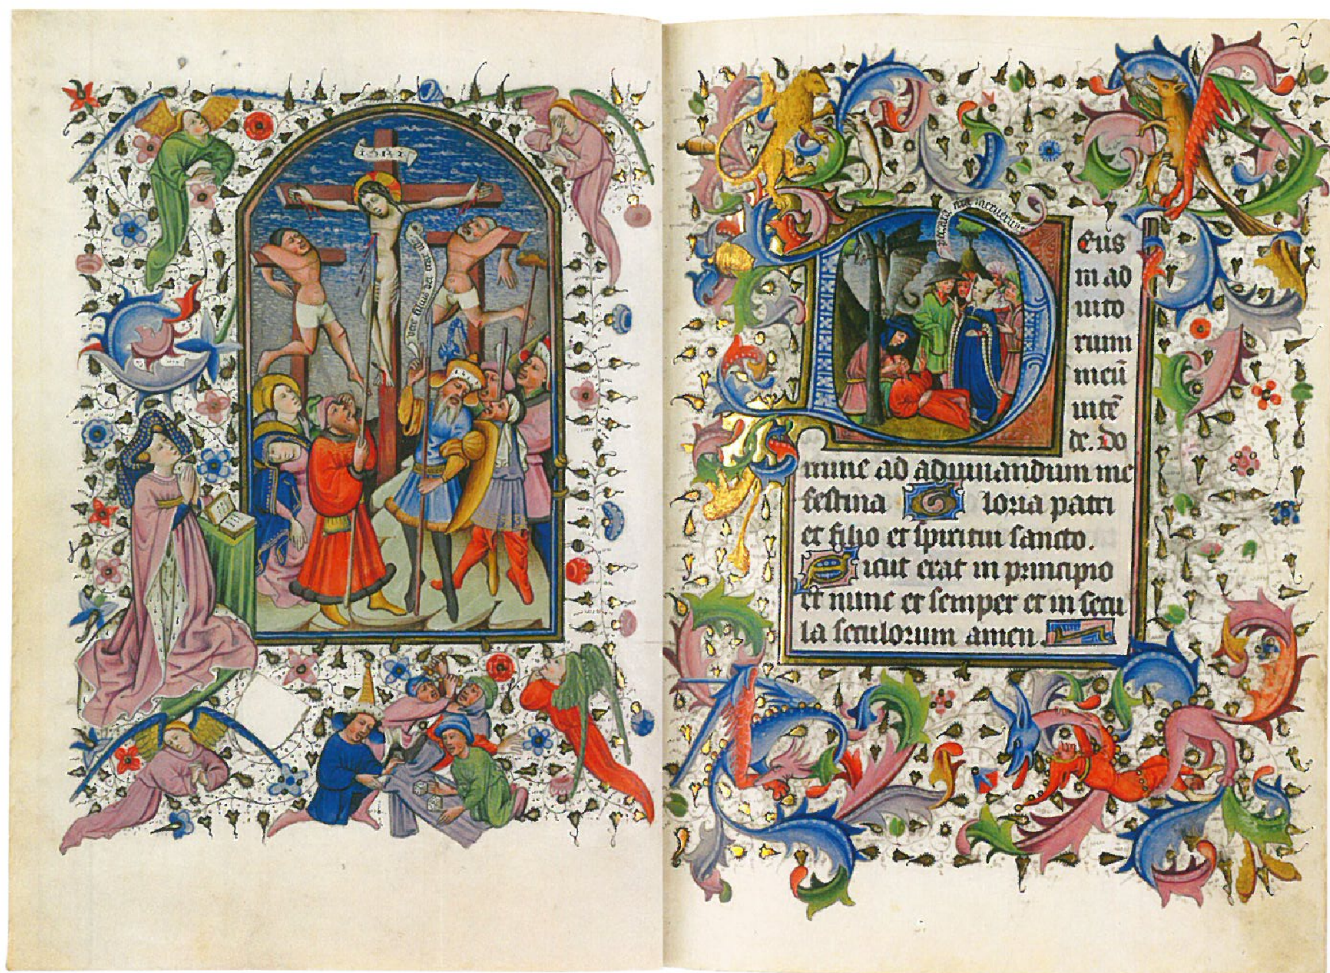 INRI
vere filius dei erat
Deus
in ad
iuto
rium
meū
intē
de. Do
mine ad adiuuandum me
festina Gloria patri
et filio et spiritui sancto.
Sicut erat in principio
et nunc et semper et in secu
la seculorum amen.